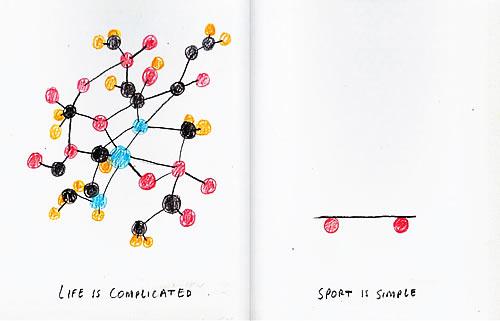 LIFE IS COMPLICATED
SPORT IS SIMPLE